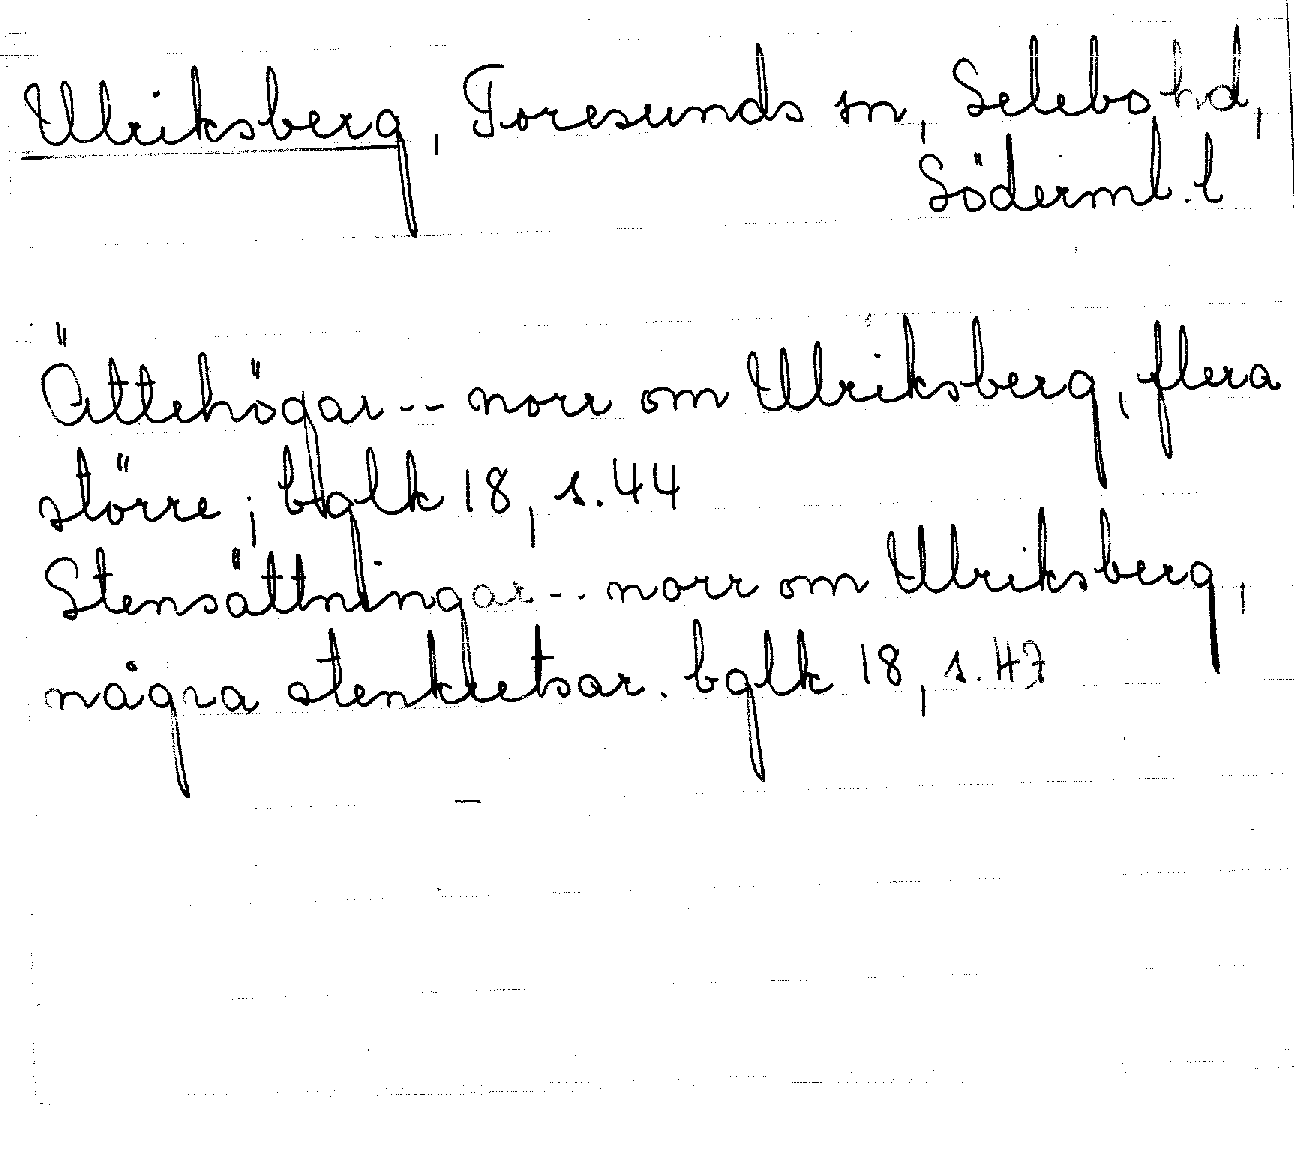 Ulriksberg, Toresunds sn, Selebo hd,
Söderml. l
Ättehögar -- norr om Ulriksberg, flera
större; bglk 18, s. 44
Stensättningar -- norr om Ulriksberg,
några stenkretsar. bglk 18, s. 47